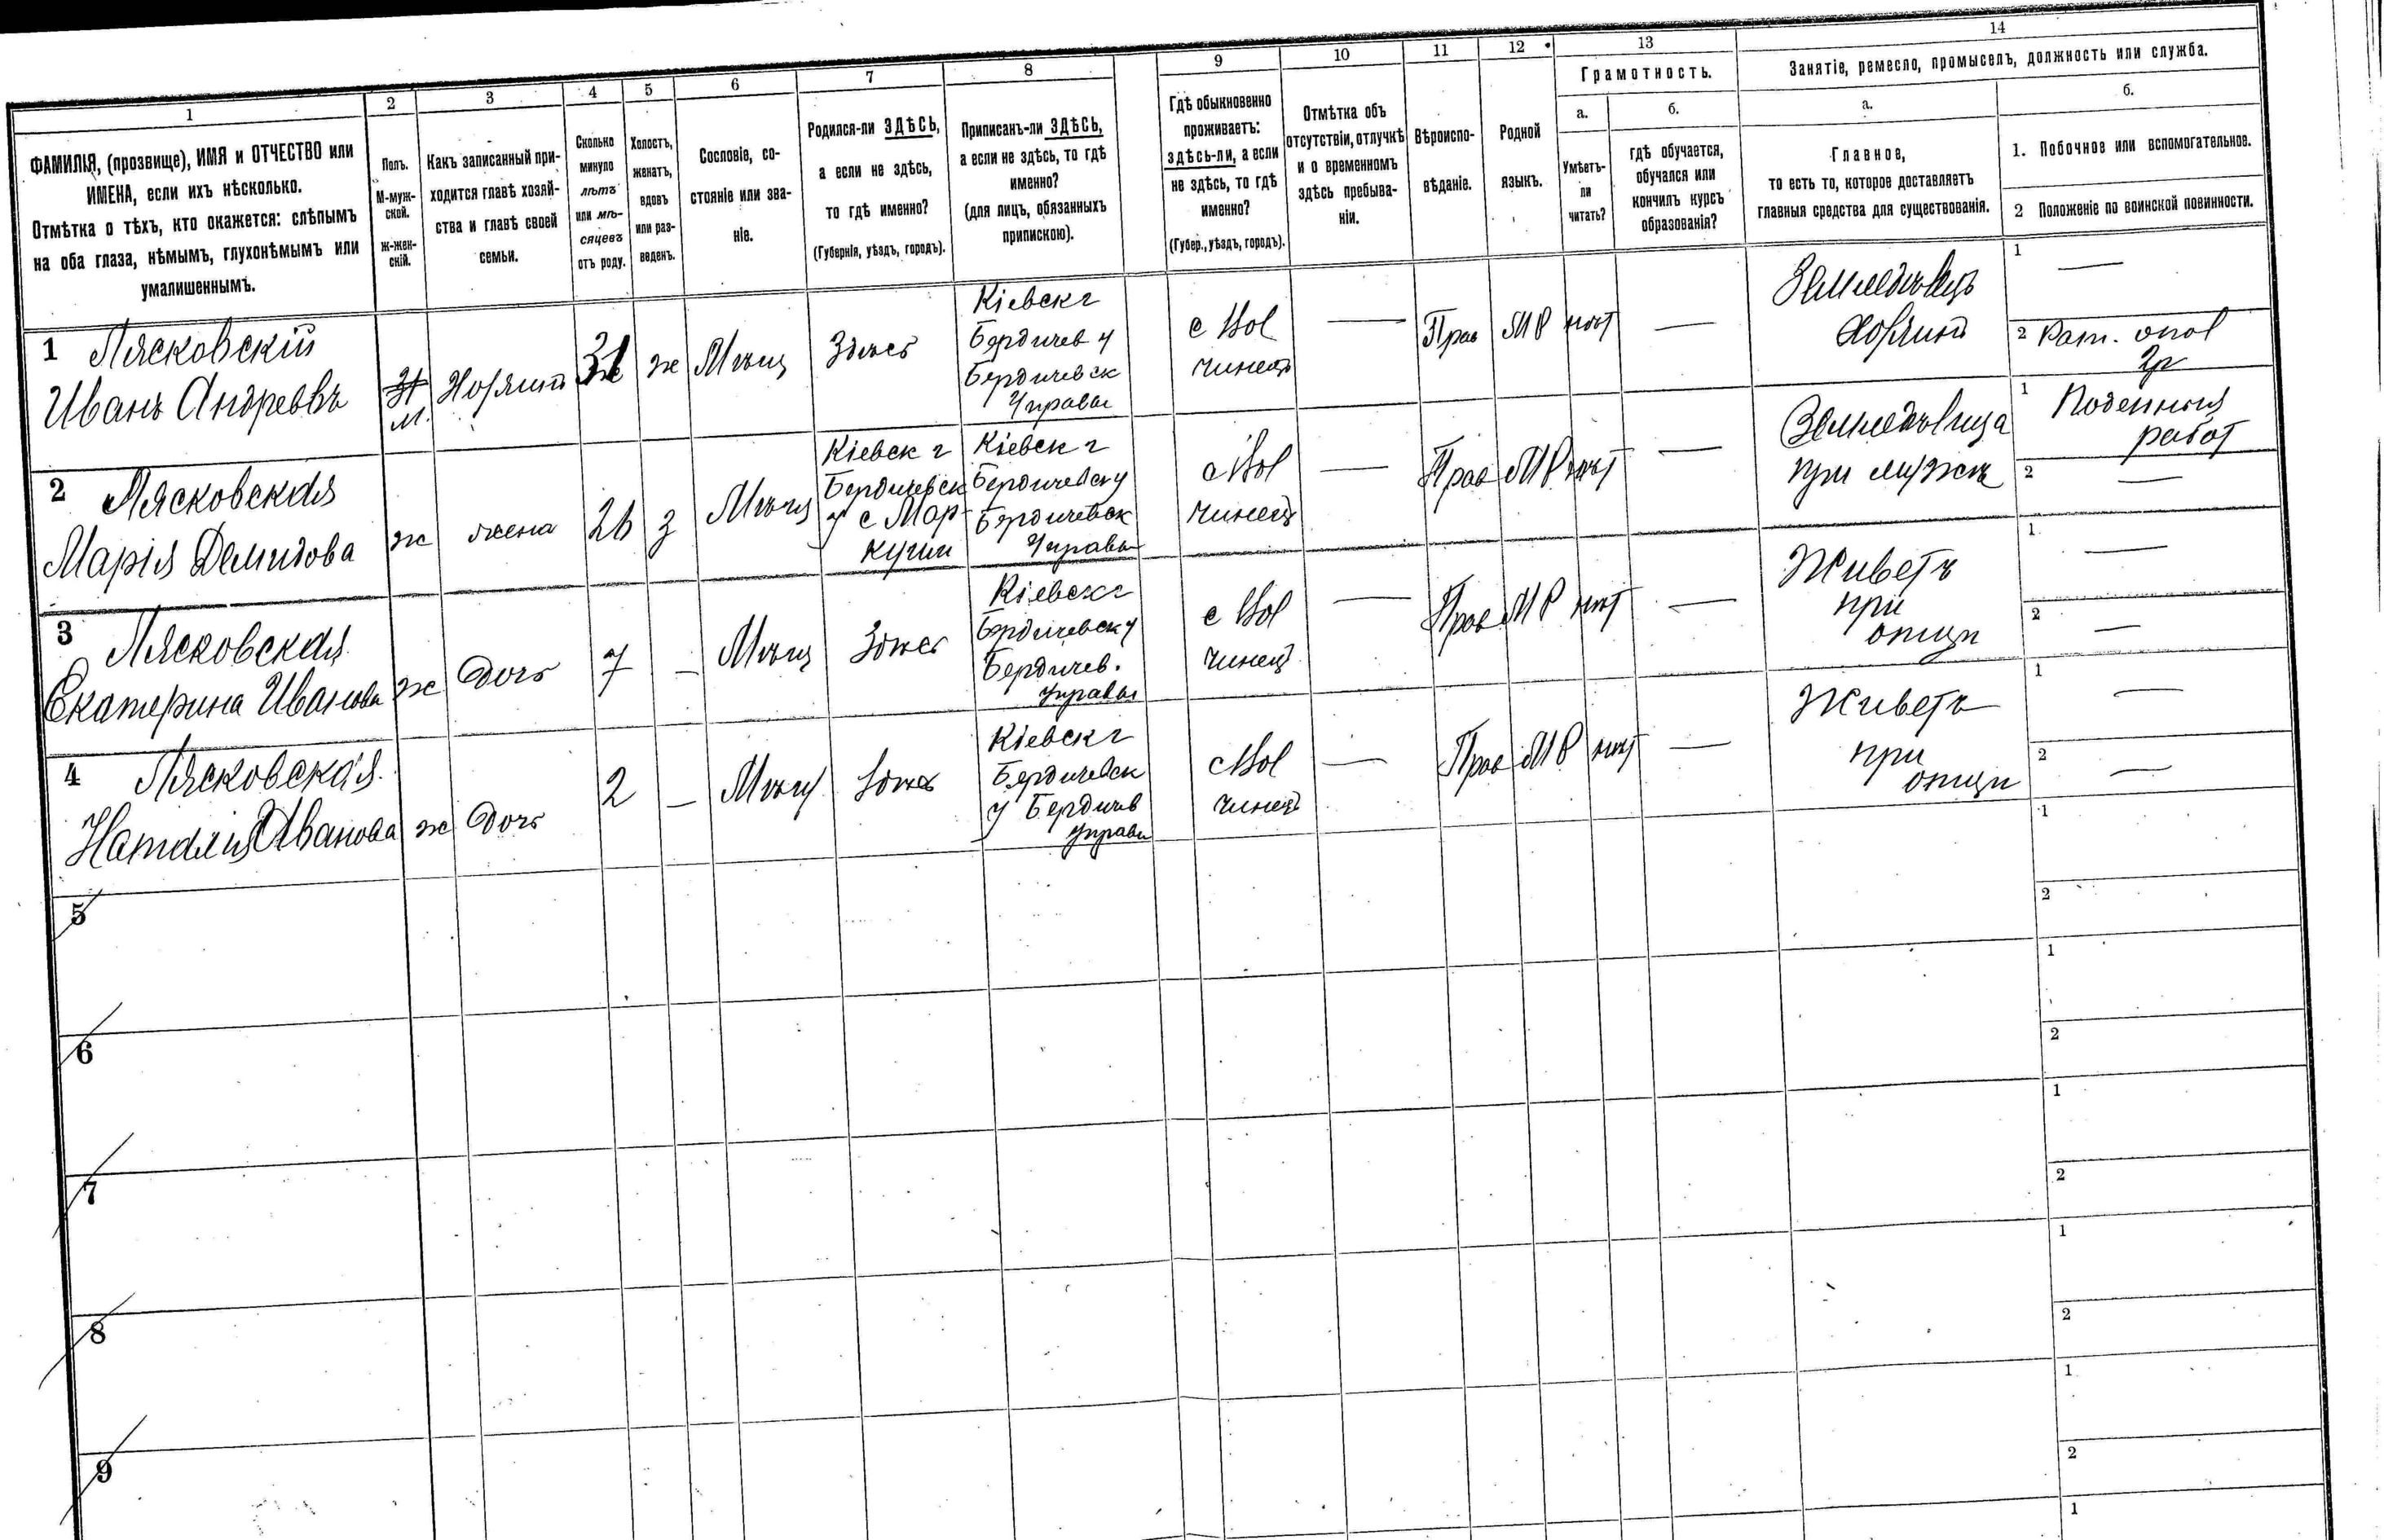 1
2
3
4
5
6
7
8
9
10
11
12
13
14
ФАМИЛІЯ, (прозвище), ИМЯ и ОТЧЕСТВО или
ИМЕНА, если ихъ нѣсколько.
Отмѣтка о тѣхъ, кто окажется: слѣпымъ
на оба глаза, нѣмымъ, глухонѣмымъ или
умалишеннымъ.
Полъ.
М-муж-
ской.
ж-жен-
скій.
Какъ записанный при-
ходится главѣ хозяй-
ства и главѣ своей
семьи.
Сколько
минуло
лѣтъ
или мѣ-
сяцевъ
отъ роду.
Холостъ,
женатъ,
вдовъ
или раз-
веденъ.
Сословіе, со-
стояніе или зва-
ніе.
Родился-ли ЗДѢСЬ,
а если не здѣсь,
то гдѣ именно?
(Губернія, уѣздъ, городъ).
Приписанъ-ли ЗДѢСЬ,
а если не здѣсь, то гдѣ
именно?
(для лицъ, обязанныхъ
припискою).
Гдѣ обыкновенно
проживаетъ:
здѣсь-ли, а если
не здѣсь, то гдѣ
именно?
(Губер., уѣздъ, городъ).
Отмѣтка объ
отсутствіи, отлучкѣ
и о временномъ
здѣсь пребыва-
ніи.
Вѣроиспо-
вѣданіе.
Родной
языкъ.
Грамотность.
а.
Умѣетъ-
ли
читать?
б.
гдѣ обучается,
обучался или
кончилъ курсъ
образованія?
Занятіе, ремесло, промыселъ, должность или служба.
а.
Главное,
то есть то, которое доставляетъ
главныя средства для существованія.
б.
1. Побочное или вспомогательное.
2 Положеніе по воинской повинности.
1 Лясковскій
Иванъ Андреевъ
м.
31
ж
Мѣщ
Здѣсь
Кіевск г
Бердичев у
Бердичевск
Управы
с Вол
чинец
—
Прав
МР
нѣт
—
1 —
2 Рат. опол
2р
2 Лясковская
Марія Демидова
ж
жена
26
з
Мѣщ
Кіевск г
Бердичевск
у с Мар-
Кіевск г
Бердичевск у
Бердичевск
Управы
с Вол
чинец
—
Прав
МР
нѣт
—
при мужѣ
1 Поденныя
работ
2 —
3 Лясковская
Екатерина Иванова
ж
дочь
7
—
Мѣщ
Здѣсь
Кіевск г
Бердичевск у
Бердичев.
Управы
с Вол
чинец
—
Прав
МР
нѣт
—
Живетъ
при
отци
1 —
2 —
4 Лясковская
Наталия Иванова
ж
дочь
2
—
Мѣщ
Здѣсь
Кіевск г
Бердичевск
у Бердичев
Управы
с Вол
чинец
—
Прав
МР
нѣт
—
Живетъ
при
отци
1 —
2 —
5
1
2
6
1
2
7
1
2
8
1
2
9
1
2
1